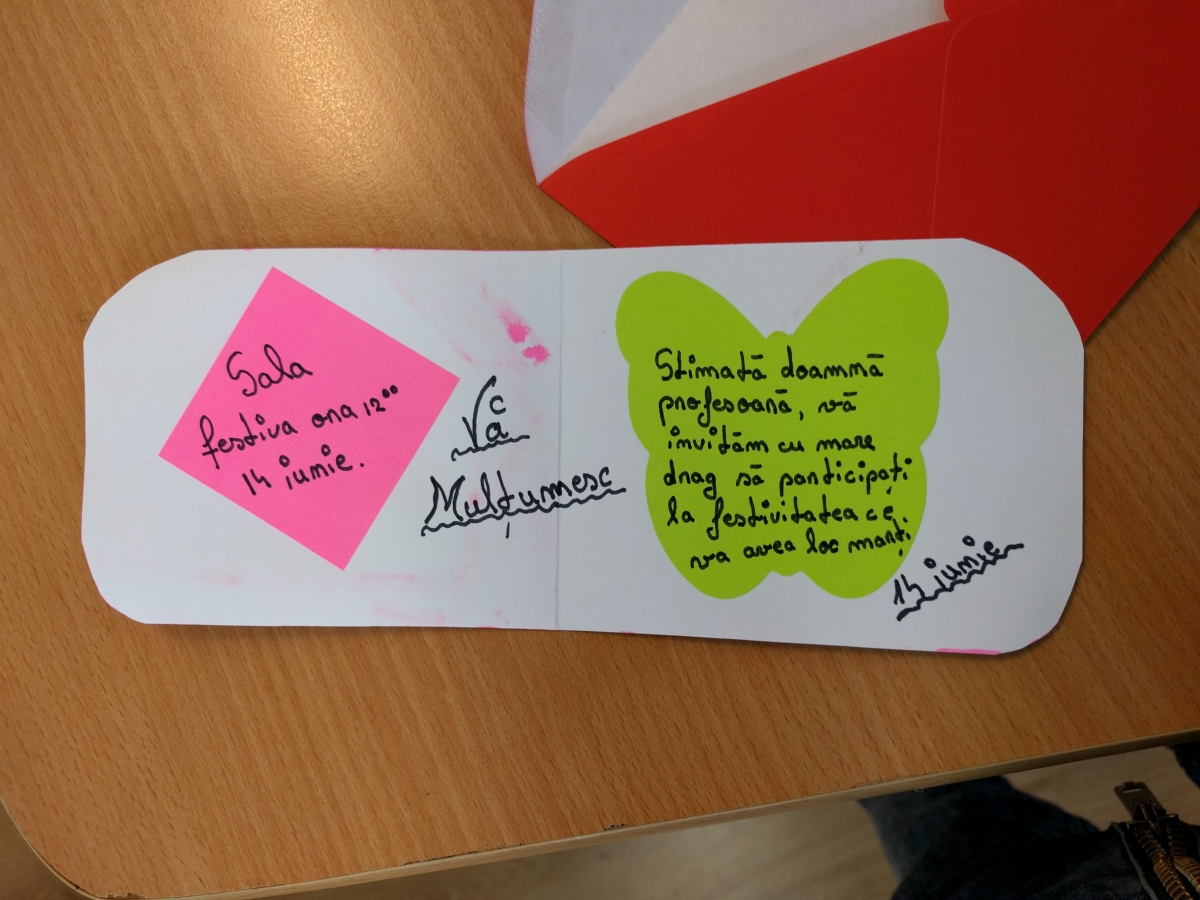 Sala
festiva ora 12⁰⁰
14 iunie.
Vă
Mulțumesc
Stimată doamnă
profesoară, vă
invităm cu mare
drag să participați
la festivitatea ce
va avea loc marți
14 iunie